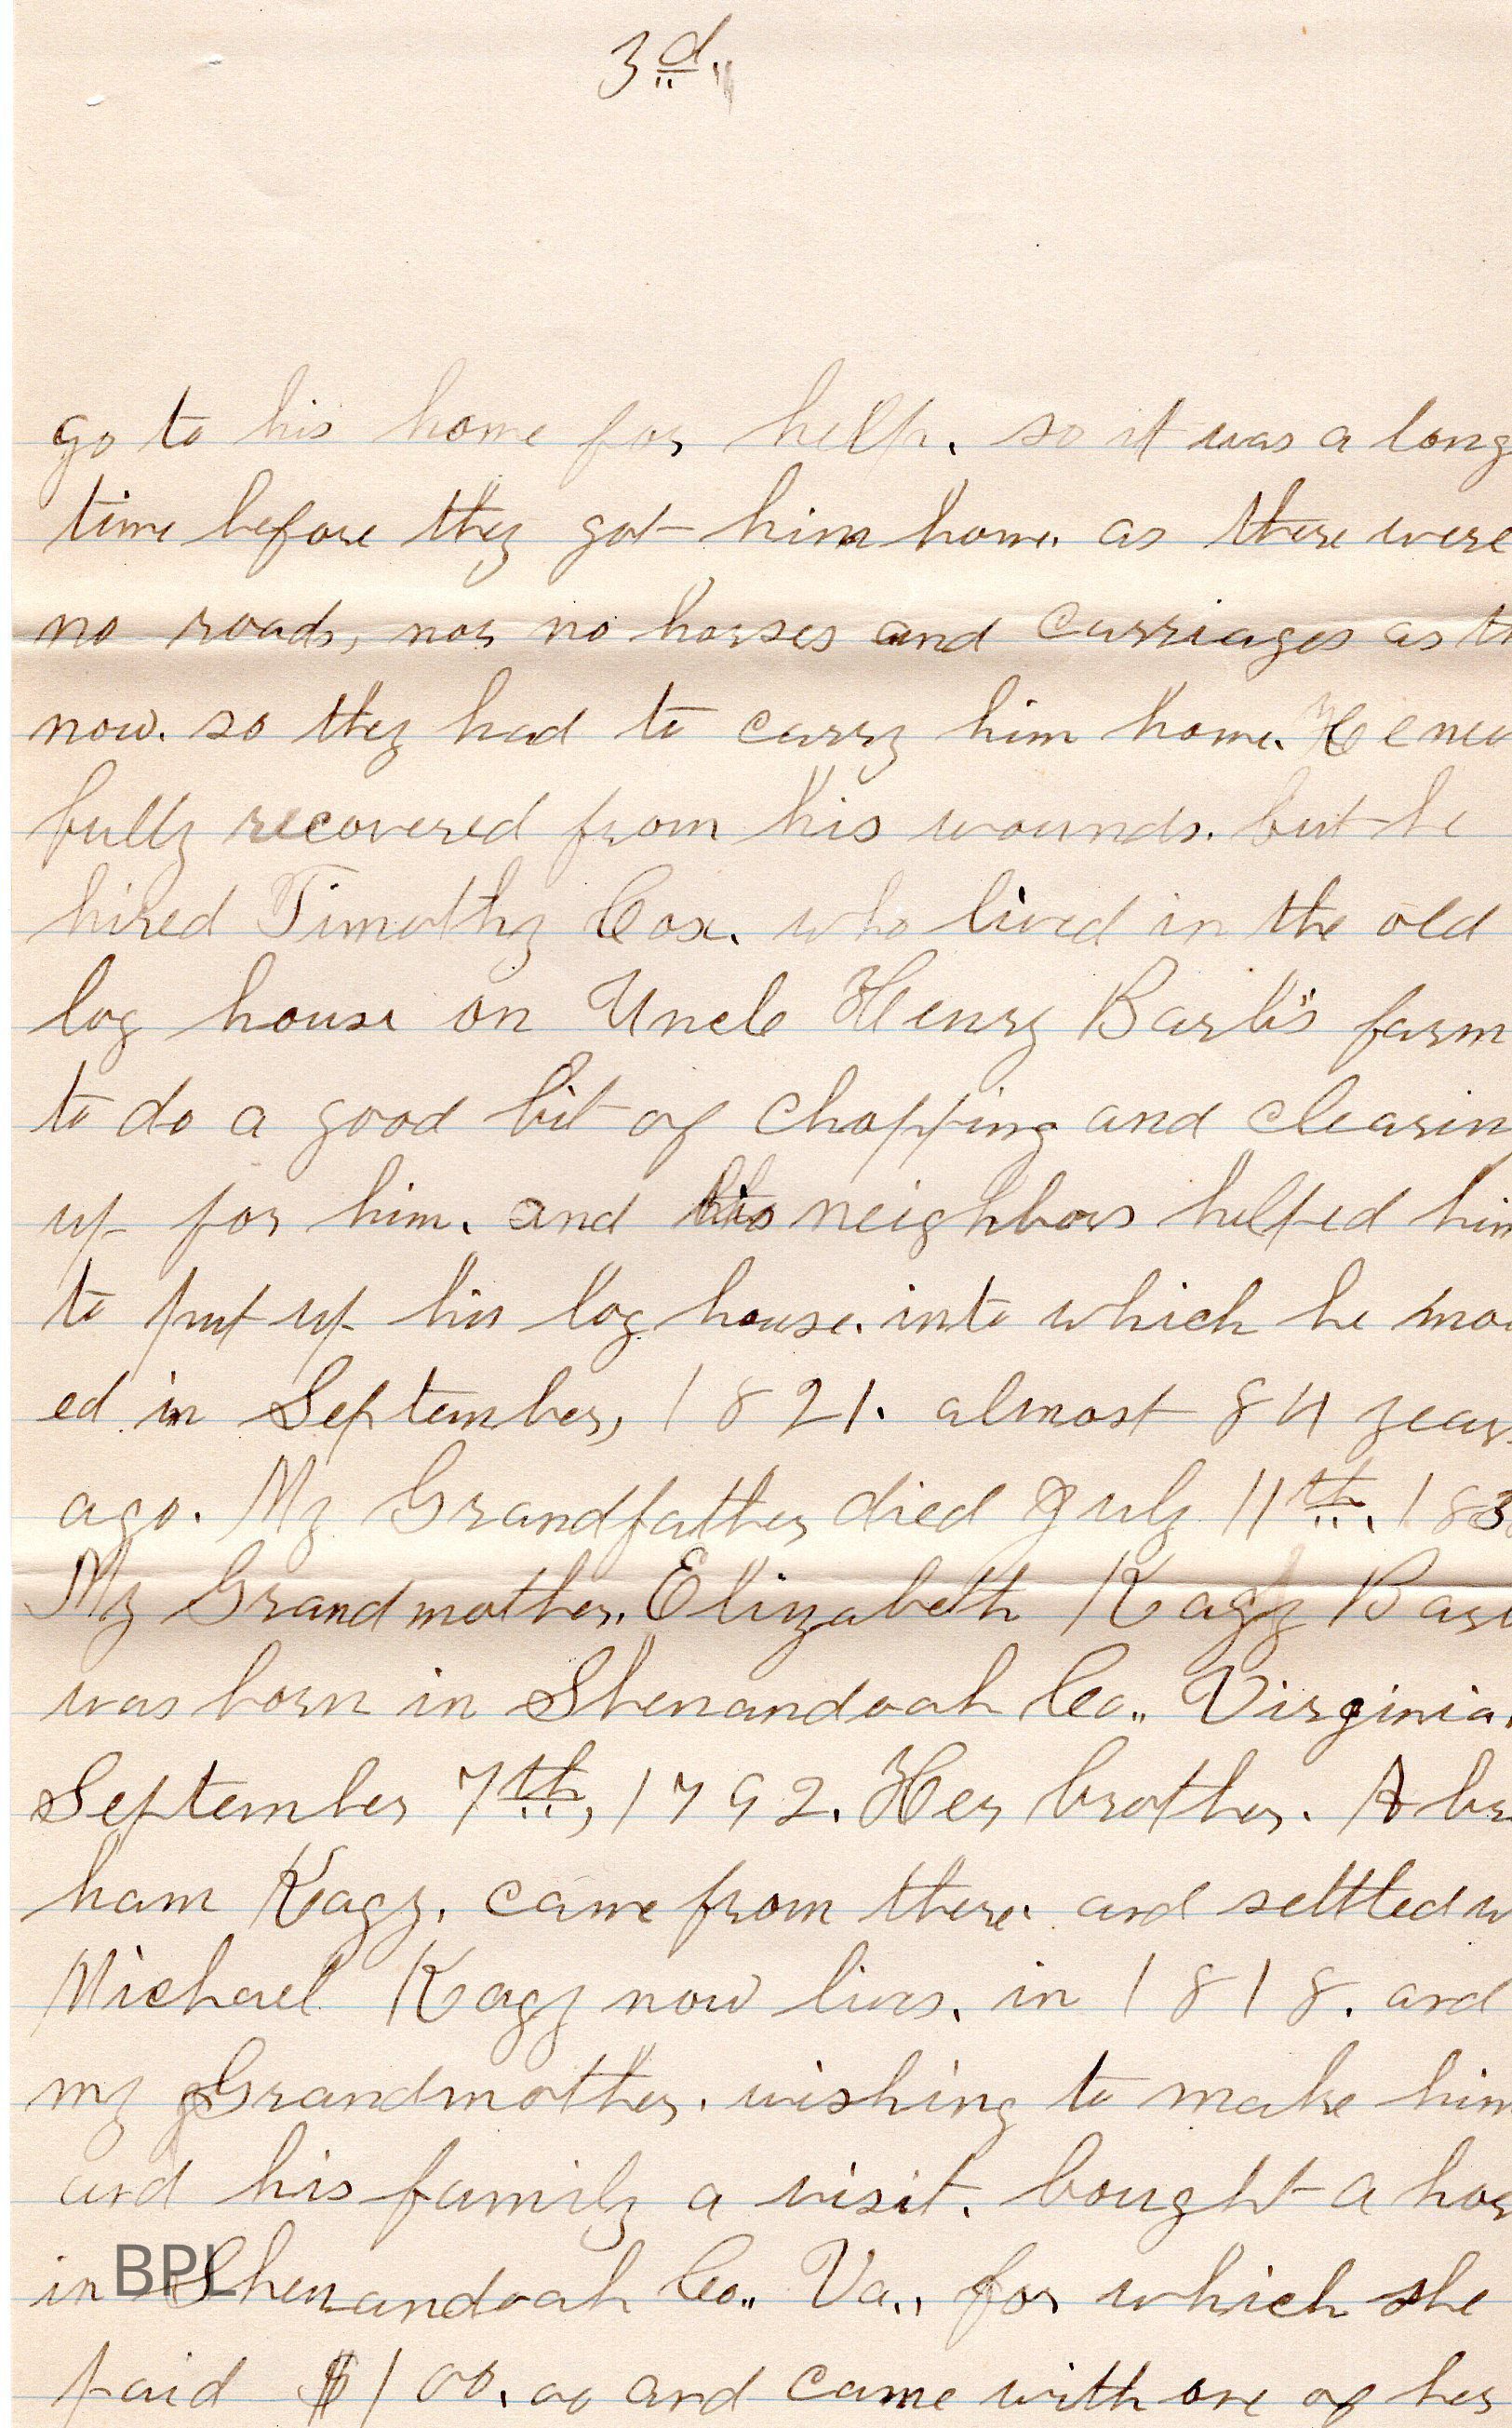 3d.
go to his home for help. so it was a long
time before they got him home. as there were
no roads, nor no horses and carriages as
now. so they had to carry him home. He nev
fully recovered from his wounds. but he
hired Timothy Cox. who lived in the old
log house on Uncle Henry Barb's farm
to do a good bit of chopping and clearin
up for him. and his neighbors helped him
to put up his log house. into which he mov
ed in September, 1821. almost 84 years
ago. My Grandfather died July 11th. 183
My Grandmother. Elizabeth Kagy Barb
was born in Shenandoah Co., Virginia.
September 7th, 1792. Her brother. Abra
ham Kagy. came from there. and settled w
Michael Kagy now lives. in 1818. and
my Grandmother. wishing to make him
and his family a visit. bought a hor
in Shenandoah Co., Va., for which she
paid $100.00 and came with one of her
BPL